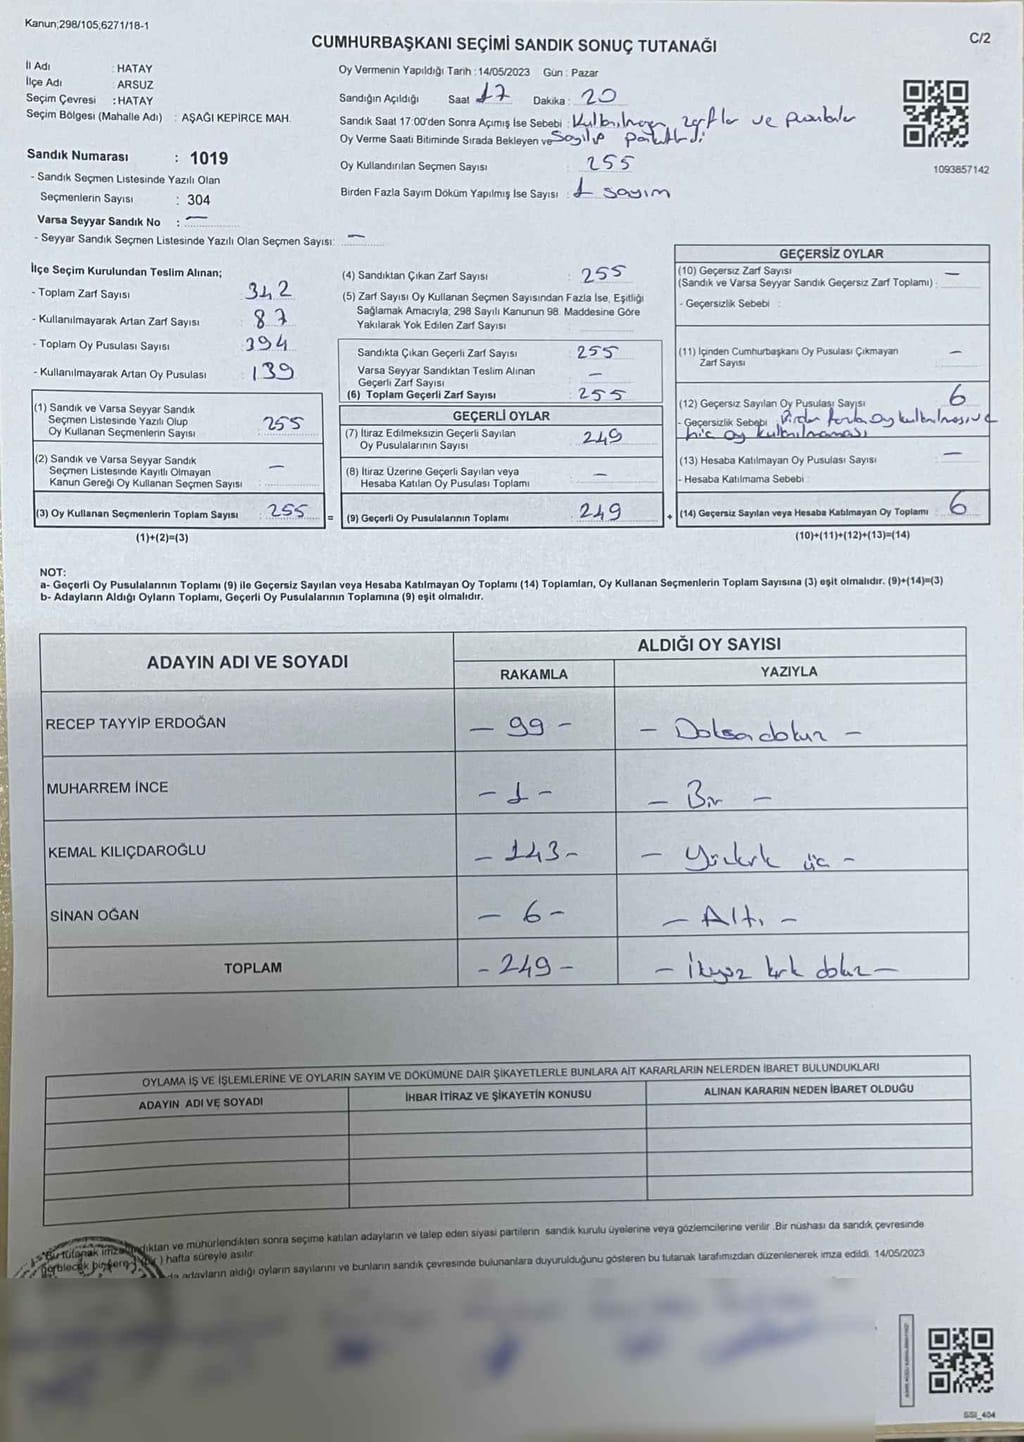 Kanun;298/105,6271/18-1
C/2
CUMHURBAŞKANI SEÇİMİ SANDIK SONUÇ TUTANAĞI
İl Adı : HATAY
İlçe Adı : ARSUZ
Seçim Çevresi : HATAY
Seçim Bölgesi (Mahalle Adı) : AŞAĞI KEPİRCE MAH.
Sandık Numarası : 1019
- Sandık Seçmen Listesinde Yazılı Olan
Seçmenlerin Sayısı : 304
Varsa Seyyar Sandık No : —
- Seyyar Sandık Seçmen Listesinde Yazılı Olan Seçmen Sayısı: —
Oy Vermenin Yapıldığı Tarih : 14/05/2023 Gün : Pazar
Sandığın Açıldığı Saat 17 Dakika : 20
Sandık Saat 17:00'den Sonra Açımış İse Sebebi : Kullanılmayan zarflar ve pusulalar
Oy Verme Saati Bitiminde Sırada Bekleyen ve Sayılıp paketlendi
Oy Kullandırılan Seçmen Sayısı 255
Birden Fazla Sayım Döküm Yapılmış İse Sayısı : 1 sayım
1093857142
İlçe Seçim Kurulundan Teslim Alınan;
- Toplam Zarf Sayısı : 342
- Kullanılmayarak Artan Zarf Sayısı : 87
- Toplam Oy Pusulası Sayısı : 394
- Kullanılmayarak Artan Oy Pusulası : 139
(1) Sandık ve Varsa Seyyar Sandık
Seçmen Listesinde Yazılı Olup
Oy Kullanan Seçmenlerin Sayısı : 255
(2) Sandık ve Varsa Seyyar Sandık
Seçmen Listesinde Kayıtlı Olmayan
Kanun Gereği Oy Kullanan Seçmen Sayısı : —
(3) Oy Kullanan Seçmenlerin Toplam Sayısı : 255
(1)+(2)=(3)
(4) Sandıktan Çıkan Zarf Sayısı : 255
(5) Zarf Sayısı Oy Kullanan Seçmen Sayısından Fazla İse, Eşitliği
Sağlamak Amacıyla; 298 Sayılı Kanunun 98. Maddesine Göre
Yakılarak Yok Edilen Zarf Sayısı :
Sandıkta Çıkan Geçerli Zarf Sayısı : 255
Varsa Seyyar Sandıktan Teslim Alınan
Geçerli Zarf Sayısı : —
(6) Toplam Geçerli Zarf Sayısı : 255
GEÇERLİ OYLAR
(7) İtiraz Edilmeksizin Geçerli Sayılan
Oy Pusulalarının Sayısı : 249
(8) İtiraz Üzerine Geçerli Sayılan veya
Hesaba Katılan Oy Pusulası Toplamı : —
= (9) Geçerli Oy Pusulalarının Toplamı : 249
GEÇERSİZ OYLAR
(10) Geçersiz Zarf Sayısı
(Sandık ve Varsa Seyyar Sandık Geçersiz Zarf Toplamı) : —
- Geçersizlik Sebebi :
(11) İçinden Cumhurbaşkanı Oy Pusulası Çıkmayan
Zarf Sayısı : —
(12) Geçersiz Sayılan Oy Pusulası Sayısı : 6
- Geçersizlik Sebebi : Birden fazla oy kullanılması ve
hiç oy kullanılmaması
(13) Hesaba Katılmayan Oy Pusulası Sayısı : —
- Hesaba Katılmama Sebebi :
+ (14) Geçersiz Sayılan veya Hesaba Katılmayan Oy Toplamı : 6
(10)+(11)+(12)+(13)=(14)
NOT:
a- Geçerli Oy Pusulalarının Toplamı (9) ile Geçersiz Sayılan veya Hesaba Katılmayan Oy Toplamı (14) Toplamları, Oy Kullanan Seçmenlerin Toplam Sayısına (3) eşit olmalıdır. (9)+(14)=(3)
b- Adayların Aldığı Oyların Toplamı, Geçerli Oy Pusulalarının Toplamına (9) eşit olmalıdır.
ADAYIN ADI VE SOYADI
ALDIĞI OY SAYISI
RAKAMLA YAZIYLA
RECEP TAYYİP ERDOĞAN — 99 — — Doksan dokuz —
MUHARREM İNCE — 1 — — Bir —
KEMAL KILIÇDAROĞLU — 143 — — Yüzkırk üç —
SİNAN OĞAN — 6 — — Altı —
TOPLAM — 249 — — İkiyüz kırk dokuz —
OYLAMA İŞ VE İŞLEMLERİNE VE OYLARIN SAYIM VE DÖKÜMÜNE DAİR ŞİKAYETLERLE BUNLARA AİT KARARLARIN NELERDEN İBARET BULUNDUKLARI
ADAYIN ADI VE SOYADI İHBAR İTİRAZ VE ŞİKAYETİN KONUSU ALINAN KARARIN NEDEN İBARET OLDUĞU
Bu tutanak imzalandıktan ve mühürlendikten sonra seçime katılan adayların ve talep eden siyasi partilerin sandık kurulu üyelerine veya gözlemcilerine verilir. Bir nüshası da sandık çevresinde
görülebilecek bir yere ) hafta süreyle asılır.
adayların aldığı oyların sayılarını ve bunların sandık çevresinde bulunanlara duyurulduğunu gösteren bu tutanak tarafımızdan düzenlenerek imza edildi. 14/05/2023
SSI_404